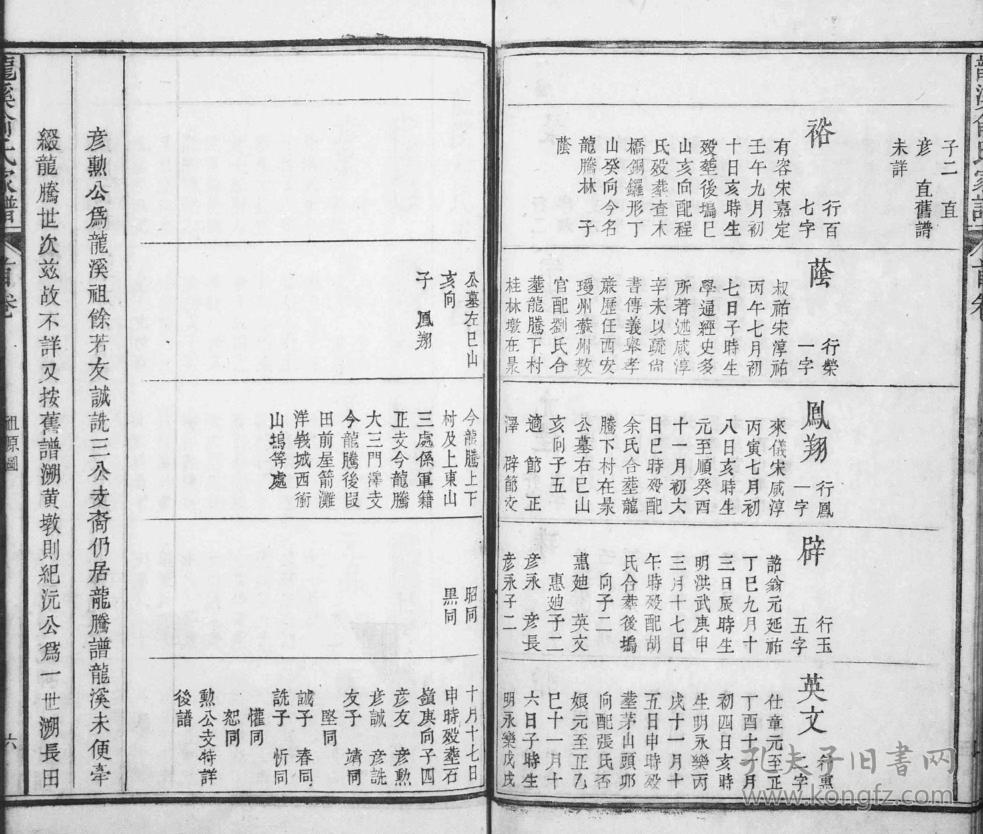 龍溪俞氏家譜
首卷
子二　直
彦　直舊譜
未詳
裕
行百
七字
有容宋嘉定
壬午九月初
十日亥時生
歿塟後塢巳
山亥向配程
氏歿葬查木
橋銅鑼形丁
山癸向今名
龍騰林　子
䕃
䕃
行榮
一字
叔祐宋淳祐
丙午七月初
七日子時生
學通經史多
所著述咸淳
辛未以疏尚
書傳義舉孝
亷歷任西安
瓊州蘇州敎
官配劉氏合
塟龍騰下村
桂林墩在杲
公墓左巳山
亥向
子　鳳翔
鳳翔
行鳳
一字
來儀宋咸淳
丙寅七月初
八日亥時生
元至順癸酉
十一月初六
日巳時歿配
余氏合塟龍
騰下村在杲
公墓右巳山
亥向子五
適　節　正
澤　辟節攵
今龍騰上下
村及上東山
三處係軍籍
正支今龍騰
大三門澤支
今龍騰後叚
田前屋箭灘
洋戩城西衝
山塢等處
辟
行玉
五字
諮翁元延祐
丁巳九月十
三日辰時生
明洪武庚申
三月十七日
午時歿配胡
氏合塟後塢
向子二
惠廸　英文
惠廸子二
彦永　彦長
彦永子二
昭同
黒同
英文
行惠
二字
仕章元至正
丁酉十二月
初四日亥時
生明永樂丙
戌十一月十
五日申時歿
塟茅山頭夘
向配張氏否
娘元至正乙
巳十一月十
六日子時生
明永樂戊戌
十月十七日
申時歿塟石
嶺庚向子四
彦友　彦勲
彦誠　彦詵
友子　靖同
堅同
誠子　春同
詵子　忻同
懽同
恕同
勲公支特詳
後譜
彦勲公爲龍溪祖餘若友誠詵三公支裔仍居龍騰譜龍溪未便牽
綴龍騰世次兹故不詳又按舊譜溯黄墩則紀沅公爲一世溯長田
龍溪俞氏家譜
首卷
祖原圖
六
孔夫子旧书网
www.kongfz.com